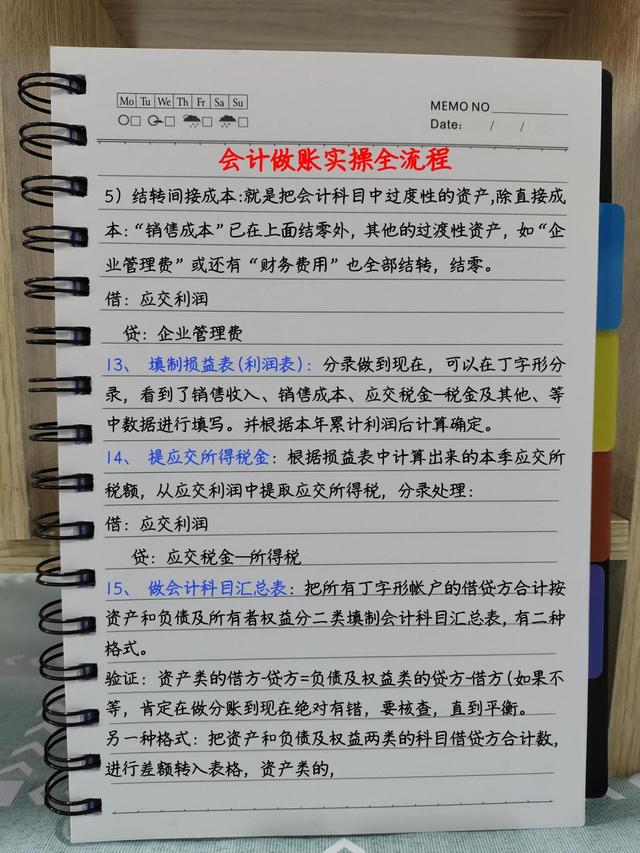 Mo Tu We Th Fr Sa Su
MEMO NO
Date: / /
会计做账实操全流程
5）结转间接成本:就是把会计科目中过度性的资产,除直接成
本:“销售成本”已在上面结零外，其他的过渡性资产，如“企
业管理费”或还有“财务费用”也全部结转，结零。
借：应交利润
贷：企业管理费
13、 填制损益表(利润表)：分录做到现在，可以在丁字形分
录，看到了销售收入、销售成本、应交税金—税金及其他、等
中数据进行填写。并根据本年累计利润后计算确定。
14、 提应交所得税金：根据损益表中计算出来的本季应交所
税额，从应交利润中提取应交所得税，分录处理：
借：应交利润
贷：应交税金—所得税
15、 做会计科目汇总表：把所有丁字形帐户的借贷方合计按
资产和负债及所有者权益分二类填制会计科目汇总表，有二种
格式。
验证：资产类的借方-贷方=负债及权益类的贷方-借方(如果不
等，肯定在做分账到现在绝对有错，要核查，直到平衡。
另一种格式：把资产和负债及权益两类的科目借贷方合计数，
进行差额转入表格，资产类的，